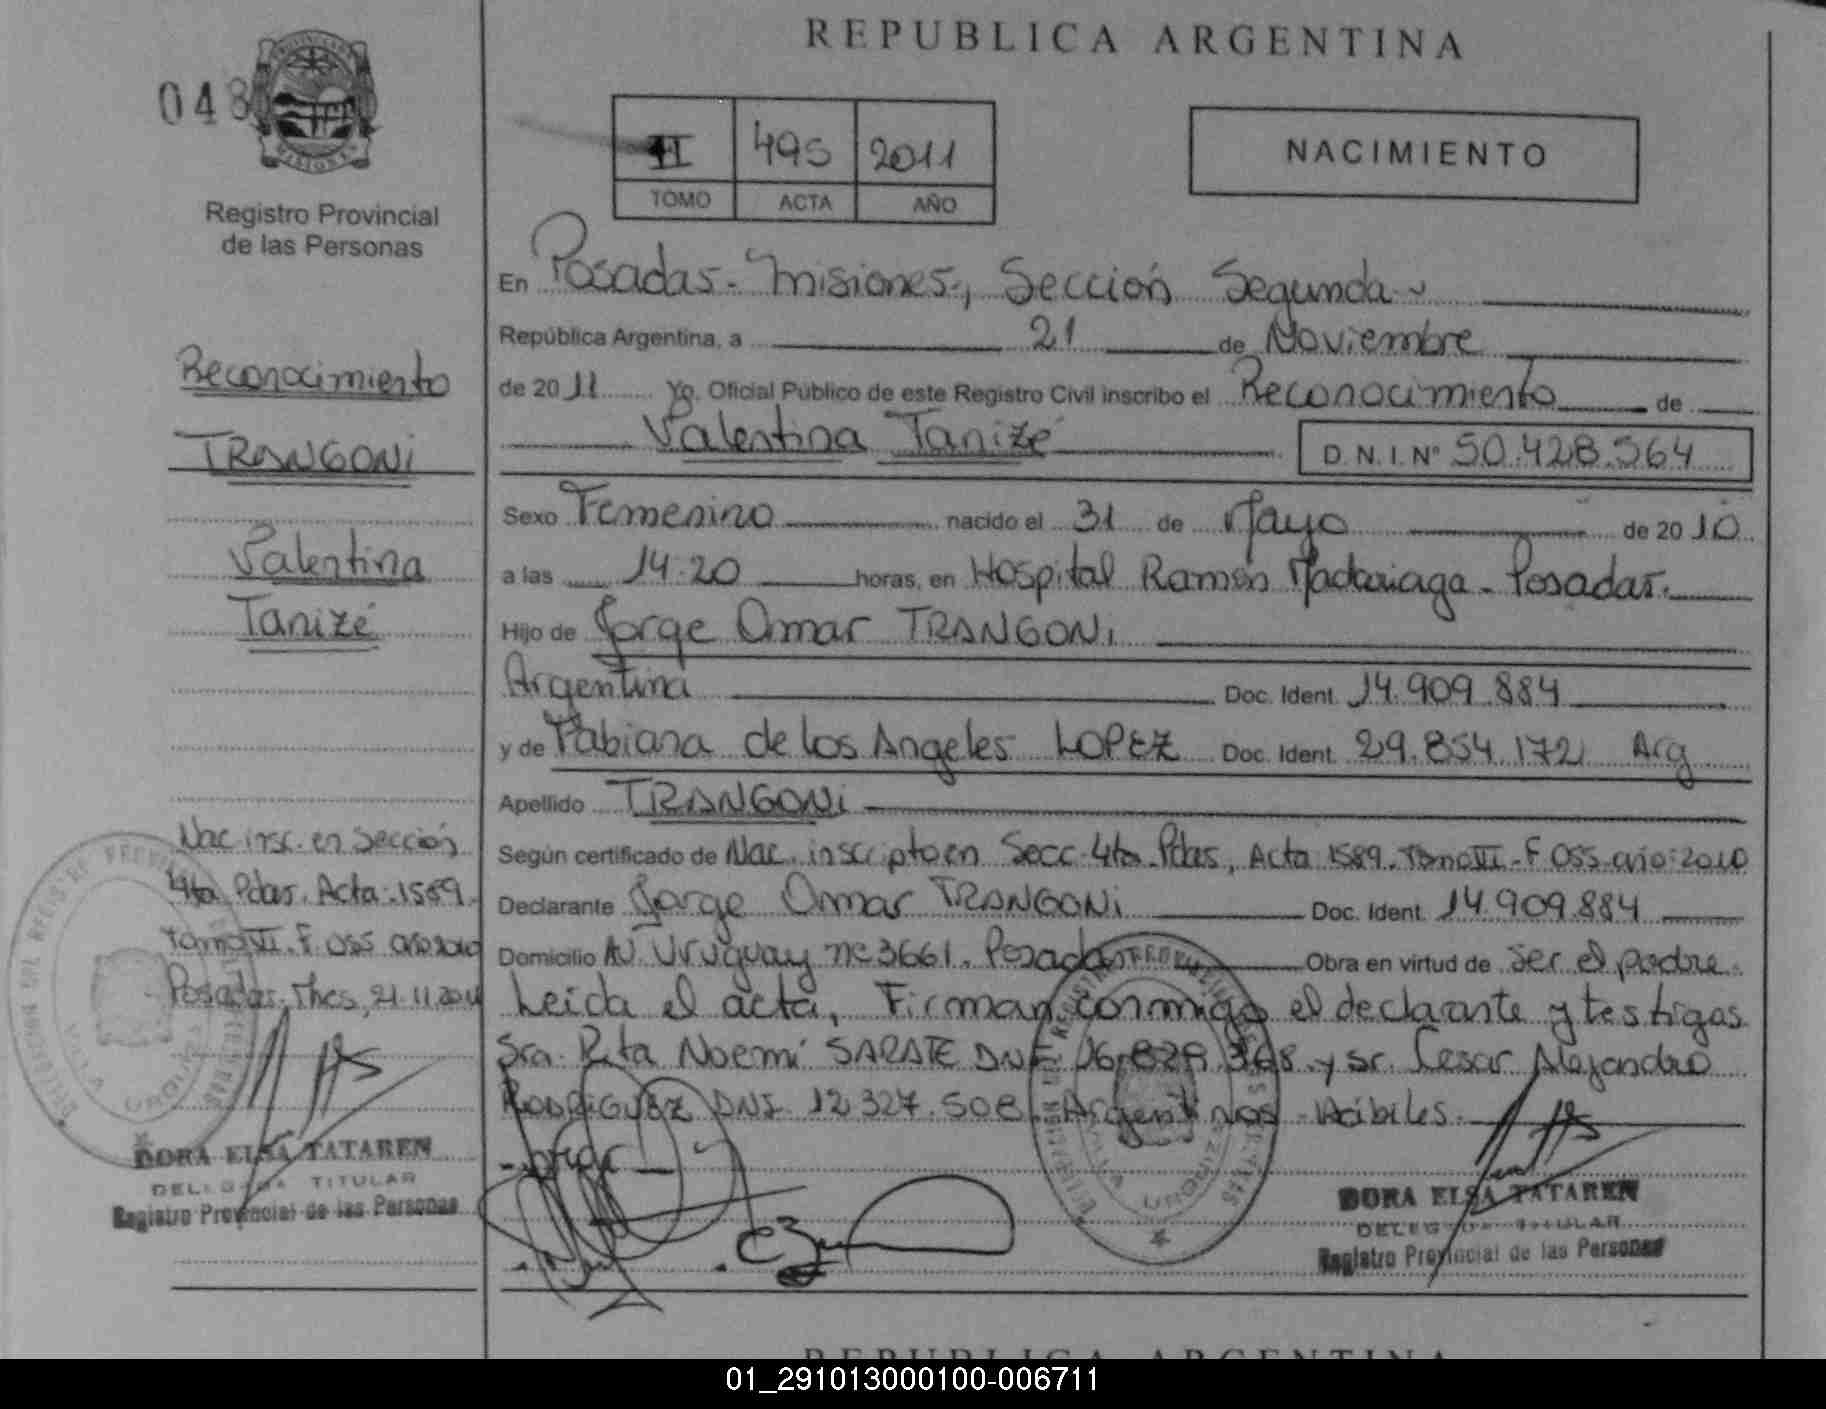 REPUBLICA ARGENTINA
048
MISIONES
Registro Provincial
de las Personas
II 495 2011
TOMO ACTA AÑO
NACIMIENTO
En Posadas - Misiones-, Sección Segunda
República Argentina, a 21 de Noviembre
de 2011 Yo, Oficial Público de este Registro Civil inscribo el Reconocimiento de
Valentina Tanizé D.N.I. Nº 50.428.564
Sexo Femenino nacido el 31 de Mayo de 2010
a las 14.20 horas, en Hospital Ramón Madariaga - Posadas.
Hijo de Jorge Omar TRANGONI
Argentina Doc. Ident. 14.909.884
y de Fabiana de los Angeles LOPEZ Doc. Ident. 29.854.172 Arg
Apellido TRANGONI
Según certificado de Nac. inscripto en Secc. 4ta. Pdas, Acta 1589. Tomo VI - F 055 año: 2010
Declarante Jorge Omar TRANGONI Doc. Ident. 14.909.884
Domicilio Av. Uruguay nº 3661. Posadas Obra en virtud de ser el padre.
Leída el acta, Firman conmigo el declarante y testigos
Sra. Rita Noemí SARATE DNI 06.829.368 y Sr. Cesar Alejandro
RODRIGUEZ DNI 12.327.508. Argentinos - Hábiles.
DORA ELSA TATAREN
DELEGADA TITULAR
Registro Provincial de las Personas
Reconocimiento
TRANGONI
Valentina
Tanizé
Nac. insc. en Sección
4ta. Pdas. Acta: 1589.
Tomo VI. F. 055 año 2010
Posadas, Mnes, 21.11.2011
DORA ELSA TATAREN
DELEGADA TITULAR
Registro Provincial de las Personas
VILLA URQUIZA
REPUBLICA ARGENTINA
01_291013000100-006711